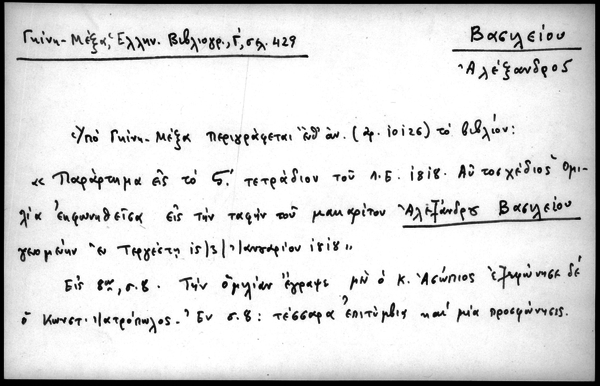 Γκίνη-Μέξα, Ἑλλην. Βιβλιογρ., Γ', σελ. 429
Βασιλείου
Ἀλέξανδρος
Ὑπὸ Γκίνη-Μέξα περιγράφεται ἐνθ' ἀν. (ἀρ. 10126) τὸ βιβλίον:
« Παράρτημα εἰς τὸ ς' τετράδιον τοῦ Λ.Ε. 1818. Αὐτοσχέδιος Ὁμι-
λία ἐκφωνηθεῖσα εἰς τὴν ταφὴν τοῦ μακαρίτου Ἀλεξάνδρου Βασιλείου
γενομένην ἐν Τεργέστῃ 15/3/Ἰανουαρίου 1818 »
Εἰς 8ον, σ. 8. Τὴν ὁμιλίαν ἔγραψε μὲν ὁ κ. Ἀσώπιος ἐξεφώνησε δὲ
ὁ Κωνστ. Ἰατρόπωλος. Ἐν σ. 8: τέσσαρα ἐπιτύμβια καὶ μία προσφώνησις.